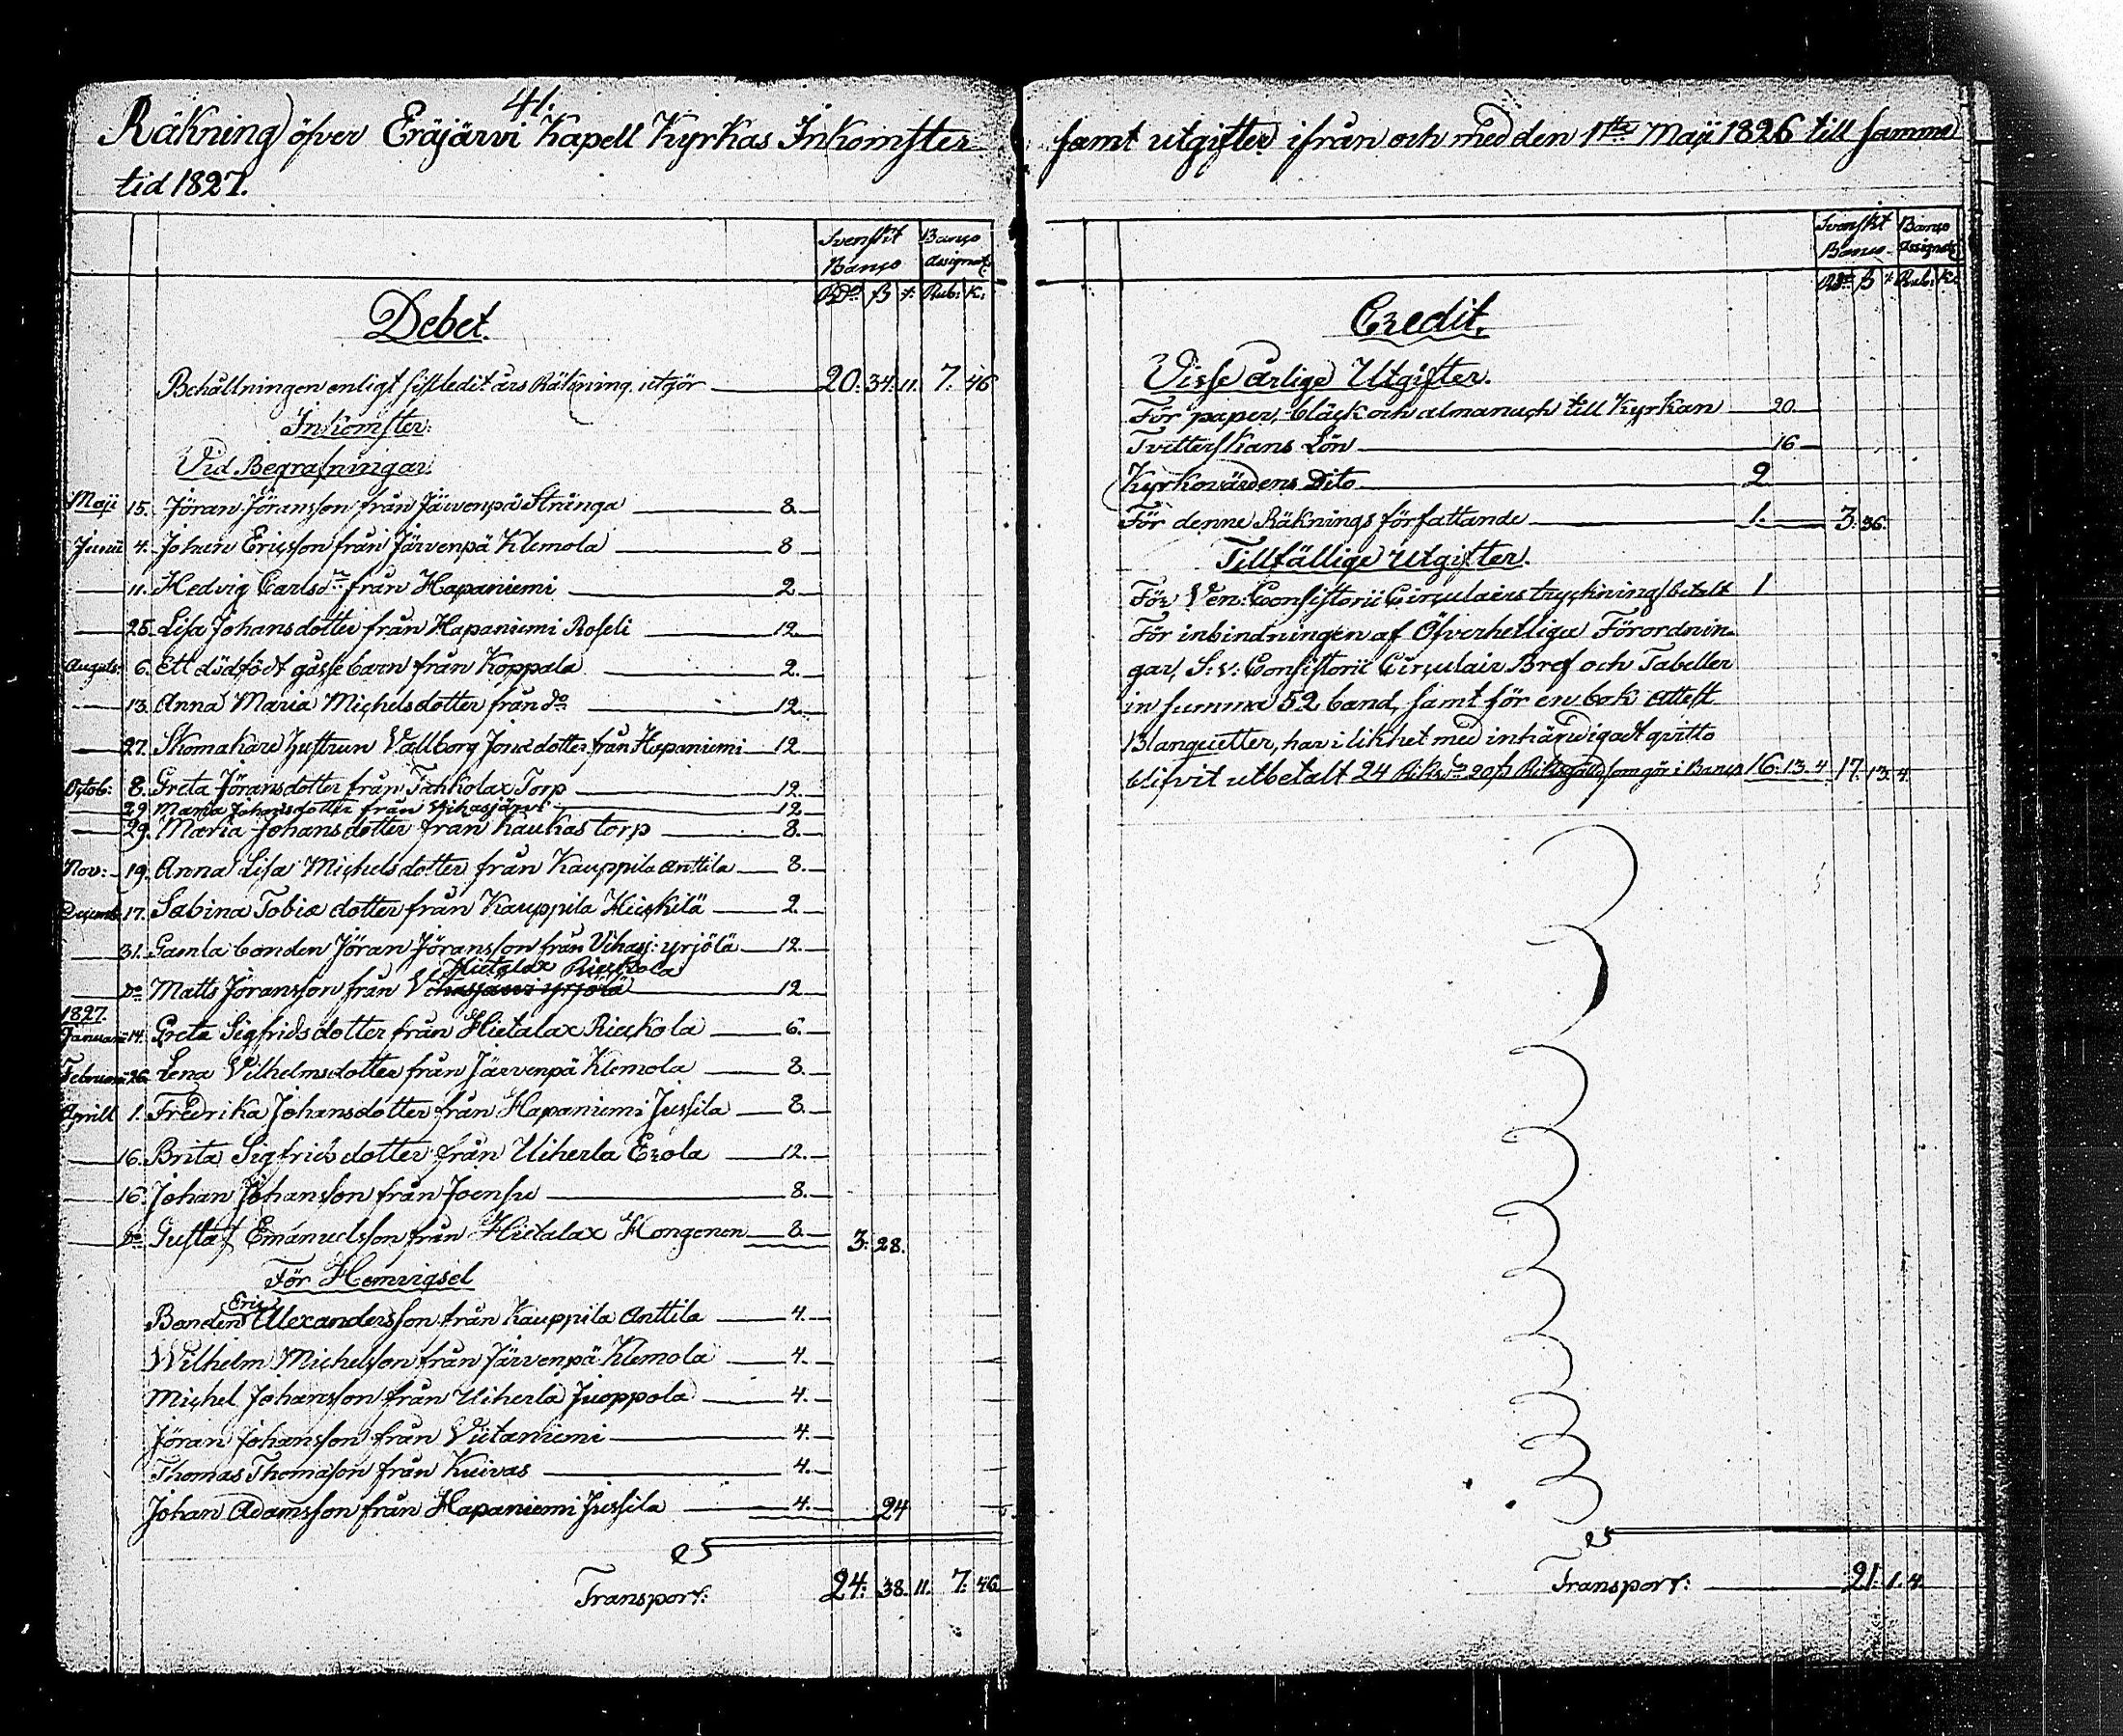 41.
Räkning öfver Eräjärvi Kapell Kyrkas Inkomster
tid 1827.
Svenskt Banco
Banco assignat:
RD:r ß r: Rub: K:
Debet.
Behållningen enligt sistledit års Räkning utgör 20: 34: 11. 7: 46
Inkomster:
Vid Begrafningar:
Maji 15. Jöran Jöransson från Järvenpä Strånga 8.
Junii 4. Johan Ericsson från Järvenpä Klemola 8
11. Hedvig Carlsd:r från Hapaniemi 2
25. Lisa Johansdotter från Hapaniemi Roseli 12
Augusti: 6. Ett dödfödt gåsse barn från Koppala 2.
13. Anna Maria Michelsdotter från d:o 12.
27. Skomakare hustrun Vallborg Jonsdotter från Hapaniemi 12
Octob: 8. Greta Jöransdotter från Torp 12.
29. Maria Johansdotter från Vihasjärvi 12.
29. Maria Johansdotter från Kaukas torp 8.
Nov: 19. Anna Lisa Michelsdotter från Kauppila Anttila 8.
Decemb: 17. Sabina Tobiædotter från Kauppila Heickilä 2.
31. Gamla bonden Jöran Jöransson från Vihasj: yrjölä 12.
Hietalax Rieckola
D:o Matts Jöransson från Vihasjärvi yrjölä 12
1827.
Januarii 14. Greta Sigfridsdotter från Hietalax Rieckola 6.
Februarii 26. Lena Vilhelmsdotter från Järvenpä Klemola 8.
Aprill 1. Fredrika Johansdotter från Hapaniemi Jussila 8.
16. Brita Sigfridsdotter från Uiherla Erola 12.
16. Johan Johansson från Joensu 8.
D:o Gustaf Emanuelsson från Hietalax Hongonen 8. 3: 28.
För Hemvigsel
Eric
Bonden Alexandersson från Kauppila Anttila 4.
Wilhelm Michelsson från Järvenpä Klemola 4.
Michel Johansson från Uiherla Juoppola 4.
Jöran Johansson från Viitaniemi 4.
Thomas Thomason från Kuivas 4.
Johan Adamsson från Hapaniemi Jussila 4. 24
Transport: 24: 38. 11. 7: 46
samt utgifter ifrån och med den 1:sta Maji 1826 till samma
Svenskt Banco
Banco assignat:
RD:r ß r: Rub: K:
Credit.
Visse årlige Utgifter.
För paper, bläck och almanach till Kyrkan 20
Tvetterskans Lön 16
Kyrkovärdens Dito 2
För denne Räknings författande 1. 3: 36.
Tillfällige Utgifter.
För Ven: Consistorii Circulairs tryckning betalt 1
För inbindningen af Öfverhetliga Förordnin-
gar, S: v: Consistorii Circulair Bref och Tabeller
in summa 52 band, samt för en bok Attest
Blanquetter, har i likhet med inhändigadt qvitto
blifvit utbetalt 24 Riksd:r 20 ß Riksgäld, som gör i Banco 16: 13. 4 17: 13: 4.
Transport: 21: 1. 4.